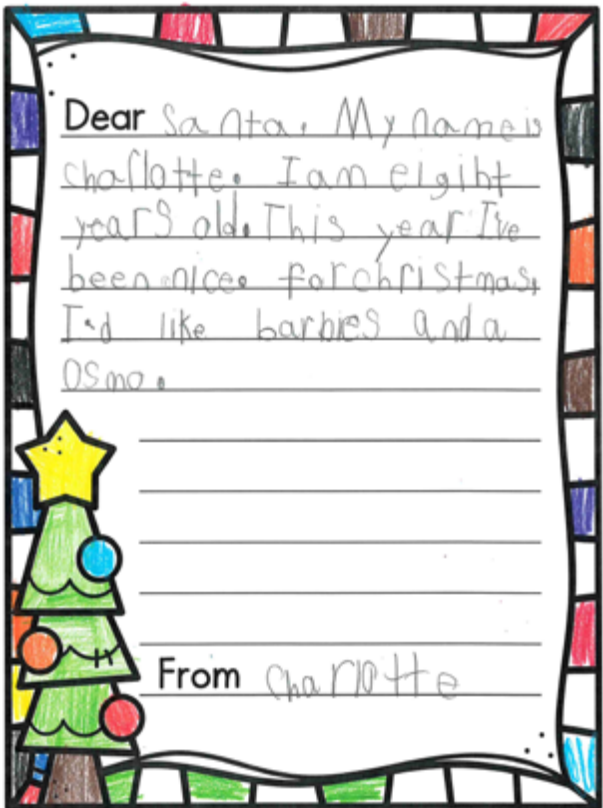 Dear Santa. My name is
charlotte. I am eigiht
years old. This year I've
been nice. for christmas,
I'd like barbies and a
Osmo.
From charlotte